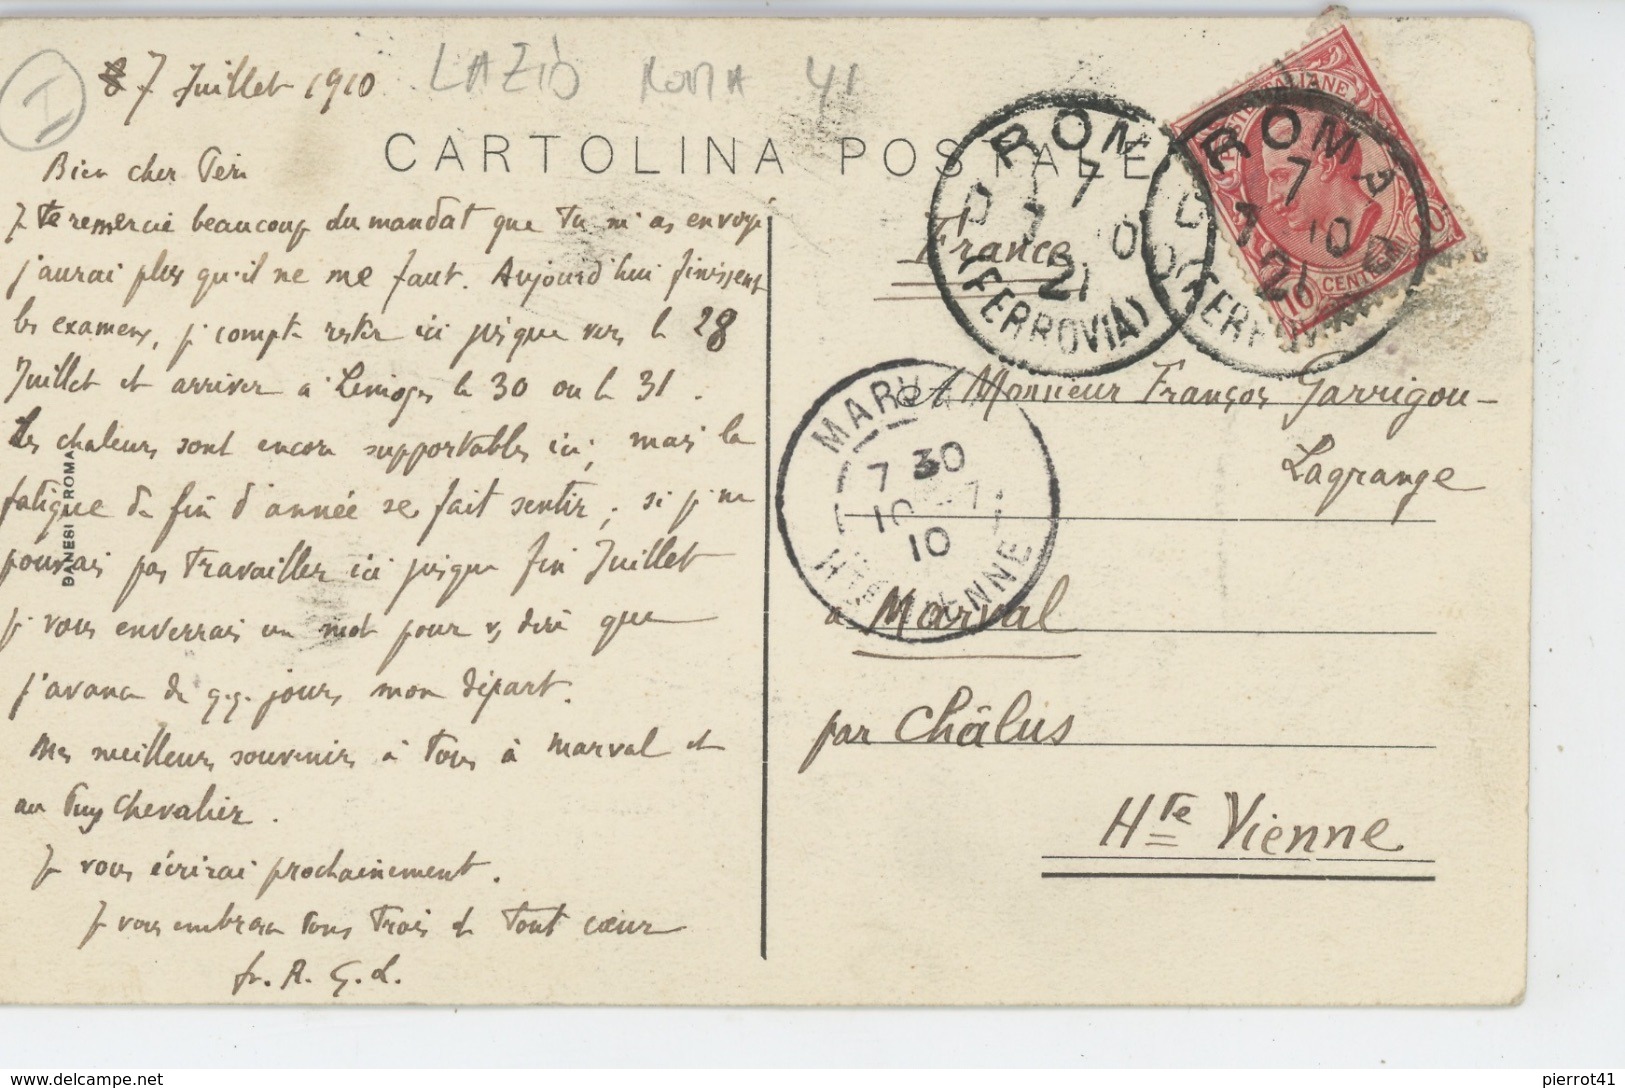 I
7 Juillet 1910
LAZIO ROMA 41
CARTOLINA POSTALE
Bien cher Père
Je te remercie beaucoup du mandat que tu m'as envoyé
j'aurai plus qu'il ne me faut. Aujourd'hui finissent
les examens, je compte rester ici jusque vers le 28
Juillet et arriver à Limoges le 30 ou le 31.
Les chaleurs sont encore supportables ici; mais la
fatigue de fin d'année se fait sentir; si je ne
pouvais pas travailler ici jusque fin Juillet
je vous enverrais un mot pour v. dire que
j'avance de q.q. jours mon départ.
Mes meilleurs souvenirs à tous à Marval et
au Puy Chevalier.
Je vous écrirai prochainement.
Je vous embrasse tous trois de tout cœur
fr. R. G. L.
DANESI ROMA
France
A Monsieur François Garrigou-
Lagrange
à Marval
par Châlus
Hte Vienne
ROMA
7 7 10
21
(FERROVIA)
ROMA
7 7 10
21
(FERROVIA)
POSTE ITALIANE
10 CENTESIMI
MARVAL
7 30
10 7
10
HTE VIENNE
pierrot41